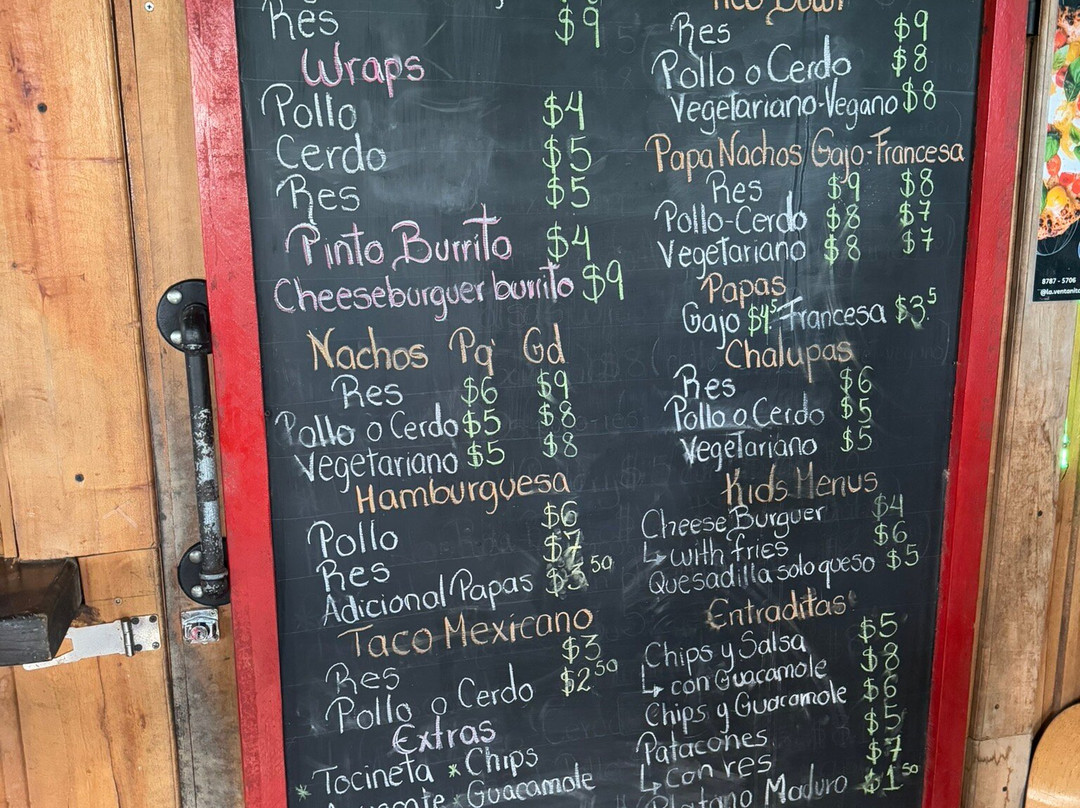 Res $9
Wraps
Pollo $4
Cerdo $5
Res $5
Pinto Burrito $4
Cheeseburguer burrito $9
Nachos Pq' Gd
Res $6 $9
Pollo o Cerdo $5 $8
Vegetariano $5 $8
Hamburguesa
Pollo $6
Res $7
Adicional Papas $3.50
Taco Mexicano
Res $3
Pollo o Cerdo $2.50
Extras
* Tocineta * Chips
Guacamole
Res $9
Pollo o Cerdo $8
Vegetariano-Vegano $8
Papa Nachos Gajo-Francesa
Res $9 $8
Pollo-Cerdo $8 $7
Vegetariano $8 $7
Papas
Gajo $4.5 Francesa $3.5
Chalupas
Res $6
Pollo o Cerdo $5
Vegetariano $5
Kids Menus
Cheese Burguer $4
↳ with fries $6
Quesadilla solo queso $5
Entraditas
Chips y Salsa $5
↳ con Guacamole $8
Chips y Guacamole $6
Patacones $5
↳ con res $7
Platano Maduro $1.50
8787 - 5706